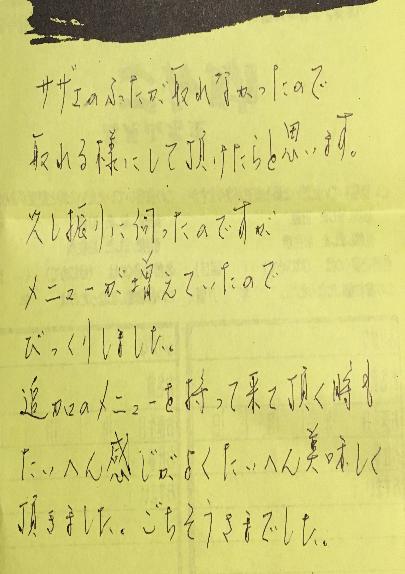 サザエのふたが取れなかったので
取れる様にして頂けたらと思います。
久し振りに伺ったのですが
メニューが増えていたので
びっくりしました。
追加のメニューを持って来て頂く時も
たいへん感じがよくたいへん美味しく
頂きました。ごちそうさまでした。